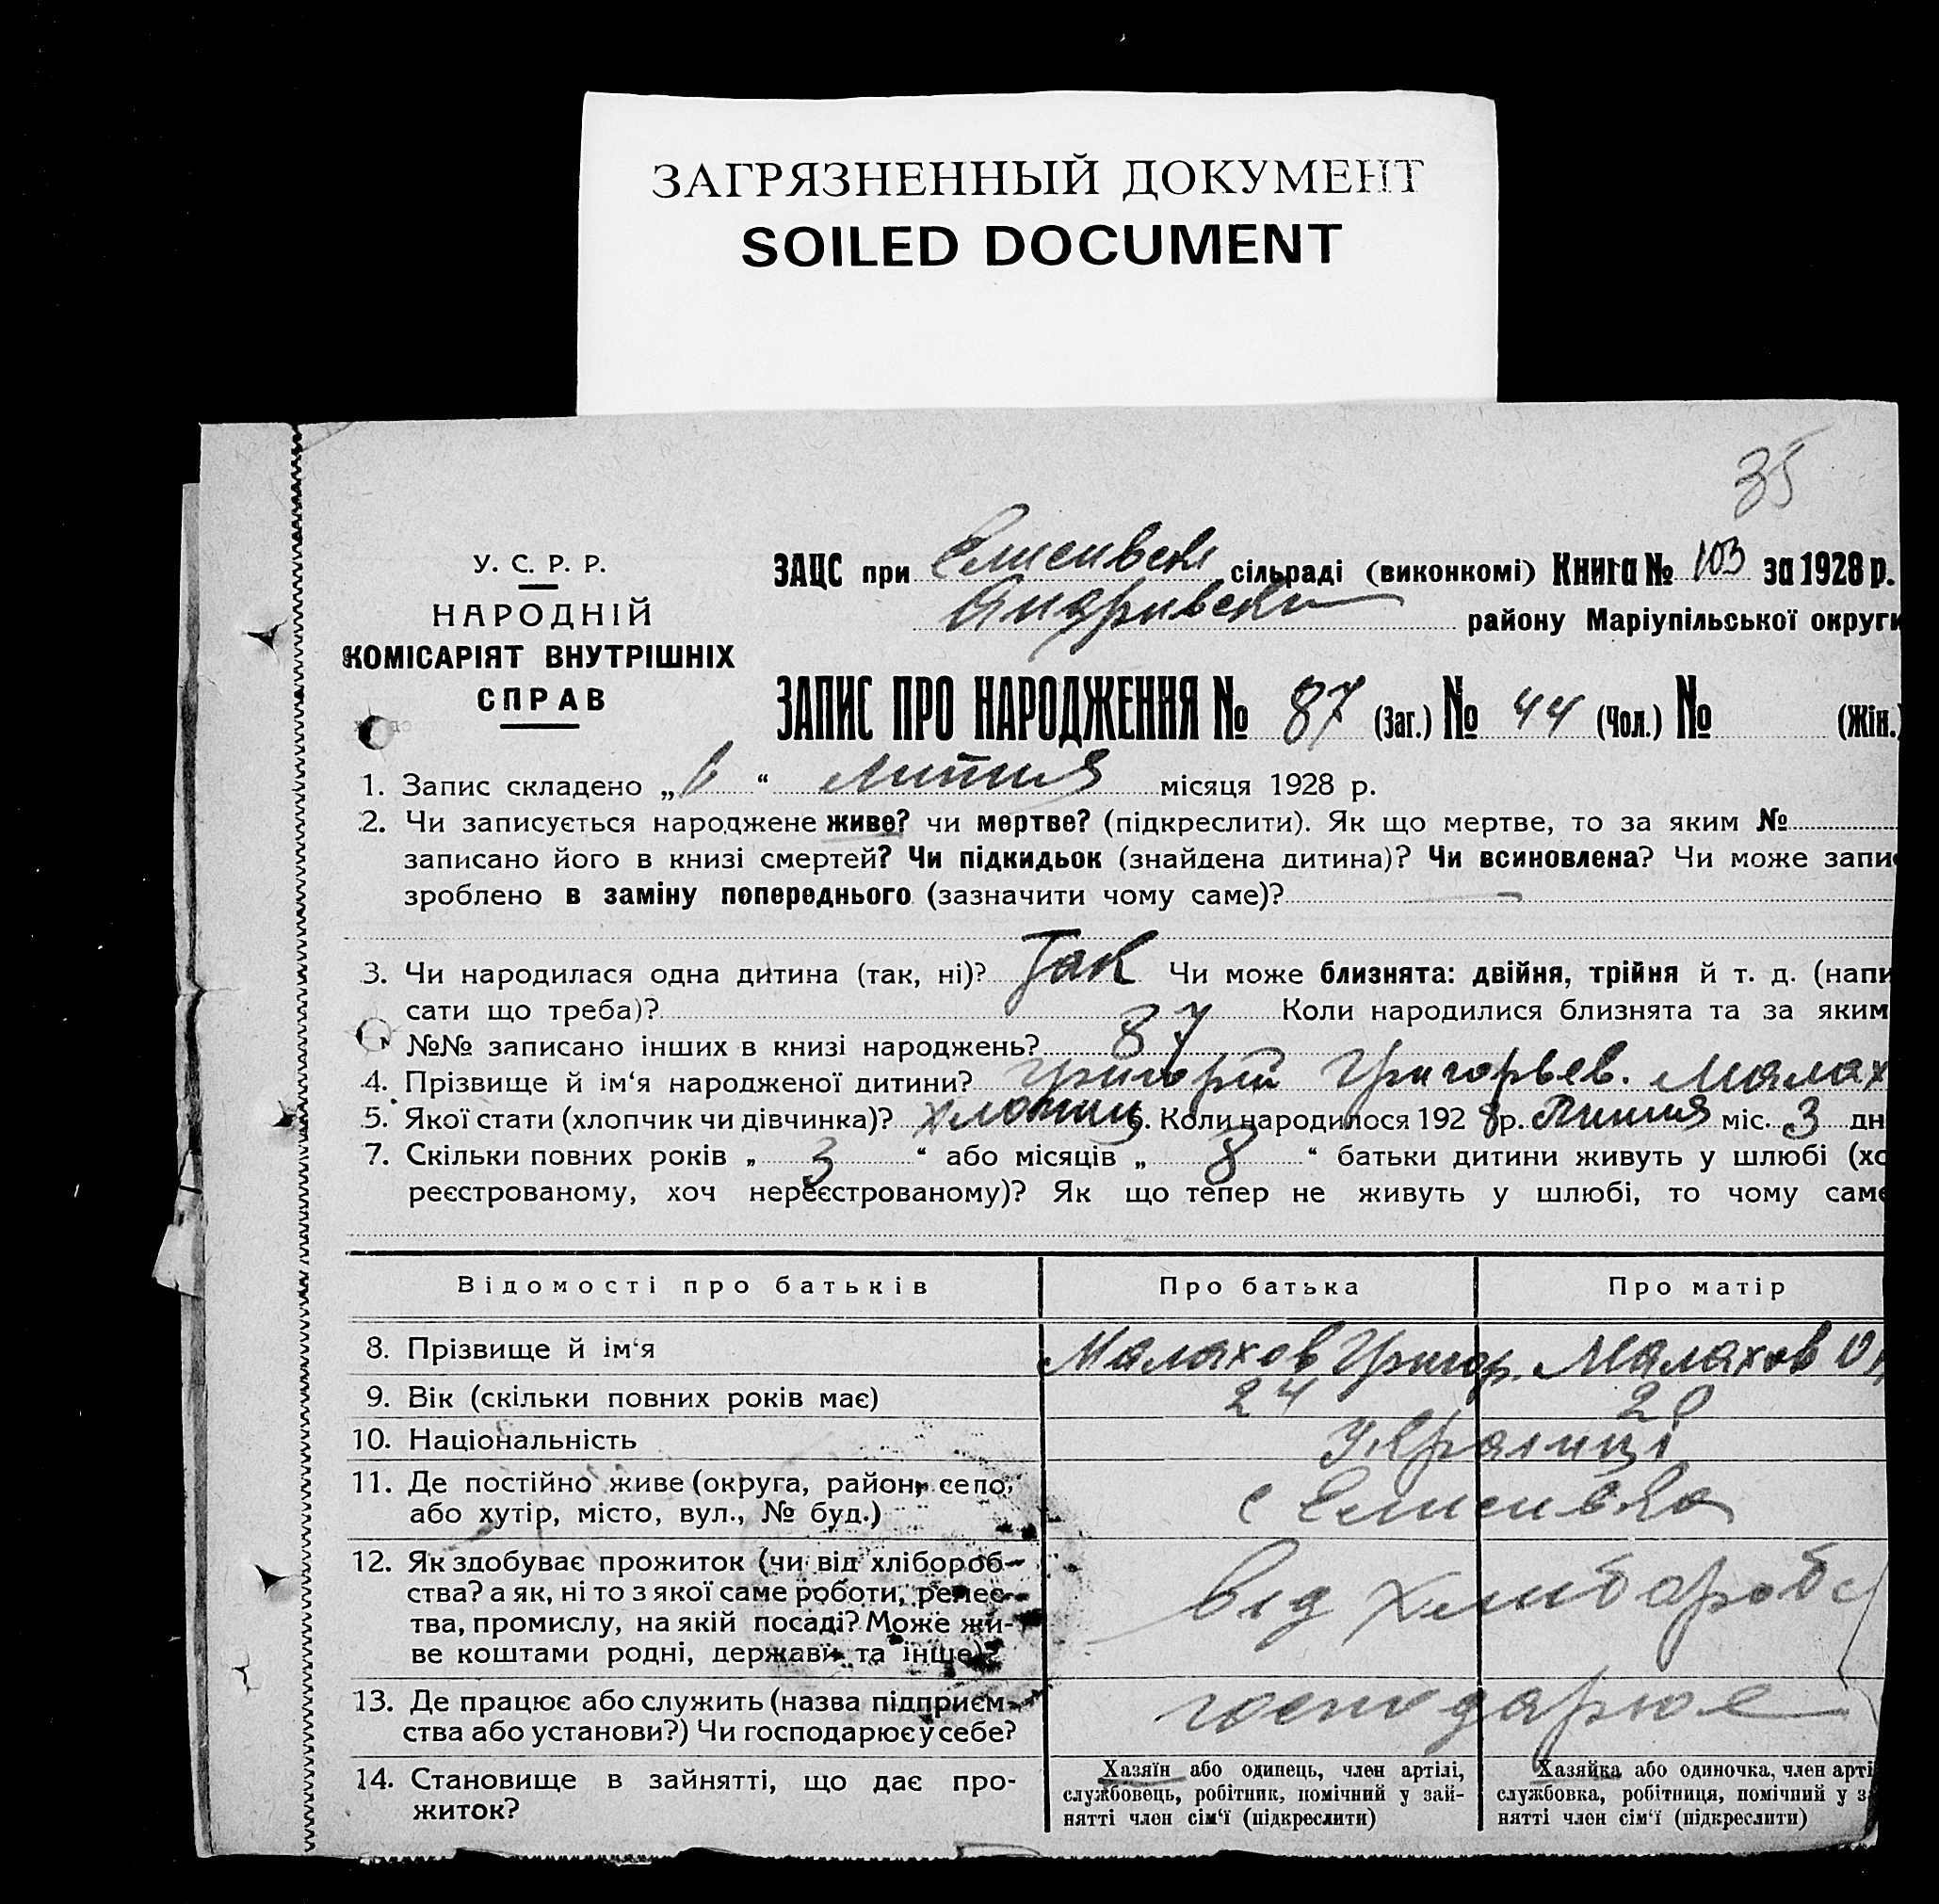 ЗАГРЯЗНЕННЫЙ ДОКУМЕНТ
SOILED DOCUMENT
35
У. С. Р. Р.
НАРОДНІЙ
КОМІСАРІЯТ ВНУТРІШНІХ
СПРАВ
ЗАЦС при сільраді (виконкомі) Книга № 103 за 1928 р.
району Маріупільської округи
ЗАПИС ПРО НАРОДЖЕННЯ № 87 (Заг.) № 44 (Чол.) № (Жін.)
1. Запис складено „ “ липня місяця 1928 р.
2. Чи записується народжене живе? чи мертве? (підкреслити). Як що мертве, то за яким №
записано його в книзі смертей? Чи підкидьок (знайдена дитина)? Чи всиновлена? Чи може запи
зроблено в заміну попереднього (зазначити чому саме)? —
3. Чи народилася одна дитина (так, ні)? Так Чи може близнята: двійня, трійня й т. д. (напи
сати що треба)? Коли народилися близнята та за яким
№№ записано інших в книзі народжень? 87
4. Прізвище й ім‘я народженої дитини? Григорій Григорьев. Малах
5. Якої стати (хлопчик чи дівчинка)? хлопиц 6. Коли народилося 1928 р. Липня міс. 3 дн
7. Скільки повних років „ 3 “ або місяців „ 8 “ батьки дитини живуть у шлюбі (хо
реєстрованому, хоч нереєстрованому)? Як що тепер не живуть у шлюбі, то чому саме
Відомості про батьків Про батька Про матір
8. Прізвище й ім‘я Малахов Григор. Малахов
9. Вік (скільки повних років має) 24 20
10. Національність Українці
11. Де постійно живе (округа, район, село,
або хутір, місто, вул., № буд.) с Елисивка
12. Як здобуває прожиток (чи від хлібороб-
ства? а як, ні то з якої саме роботи, ремес-
тва, промислу, на якій посаді? Може жи-
ве коштами родні, держави та інше)? від хлибароб
13. Де працює або служить (назва підприєм-
ства або установи?) Чи господарює у себе? господарюе
14. Становище в зайнятті, що дає про-
житок?
Хазяїн або одинець, член артілі,
службовець, робітник, помічний у зай-
нятті член сім‘ї (підкреслити)
Хазяйка або одиночка, член арті
службовка, робітниця, помічний у з
нятті член сім‘ї (підкреслити)